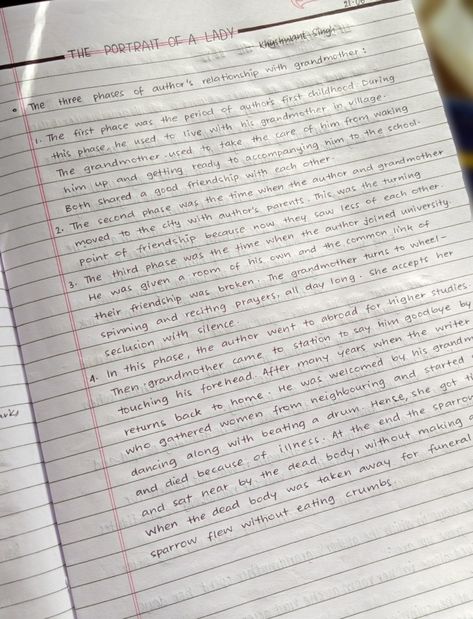 21-06
THE PORTRAIT OF A LADY
Khushwant Singh
The three phases of author's relationship with grandmother:
1. The first phase was the period of author's first childhood. During
this phase, he used to live with his grandmother in village.
The grandmother used to take the care of him from waking
him up and getting ready to accompanying him to the school.
Both shared a good friendship with each other.
2. The second phase was the time when the author and grandmother
moved to the city with author's parents. This was the turning
point of friendship because now they saw less of each other.
3. The third phase was the time when the author joined university.
He was given a room of his own and the common link of
their friendship was broken. The grandmother turns to wheel-
spinning and reciting prayers, all day long. She accepts her
seclusion with silence.
4. In this phase, the author went to abroad for higher studies.
Then grandmother came to station to say him goodbye by
touching his forehead. After many years when the writer
returns back to home. He was welcomed by his grandm
who gathered women from neighbouring and started
dancing along with beating a drum. Hense, she got
and died because of illness. At the end the sparrow
and sat near by the dead body, without making
when the dead body was taken away for funeral
sparrow flew without eating crumbs.